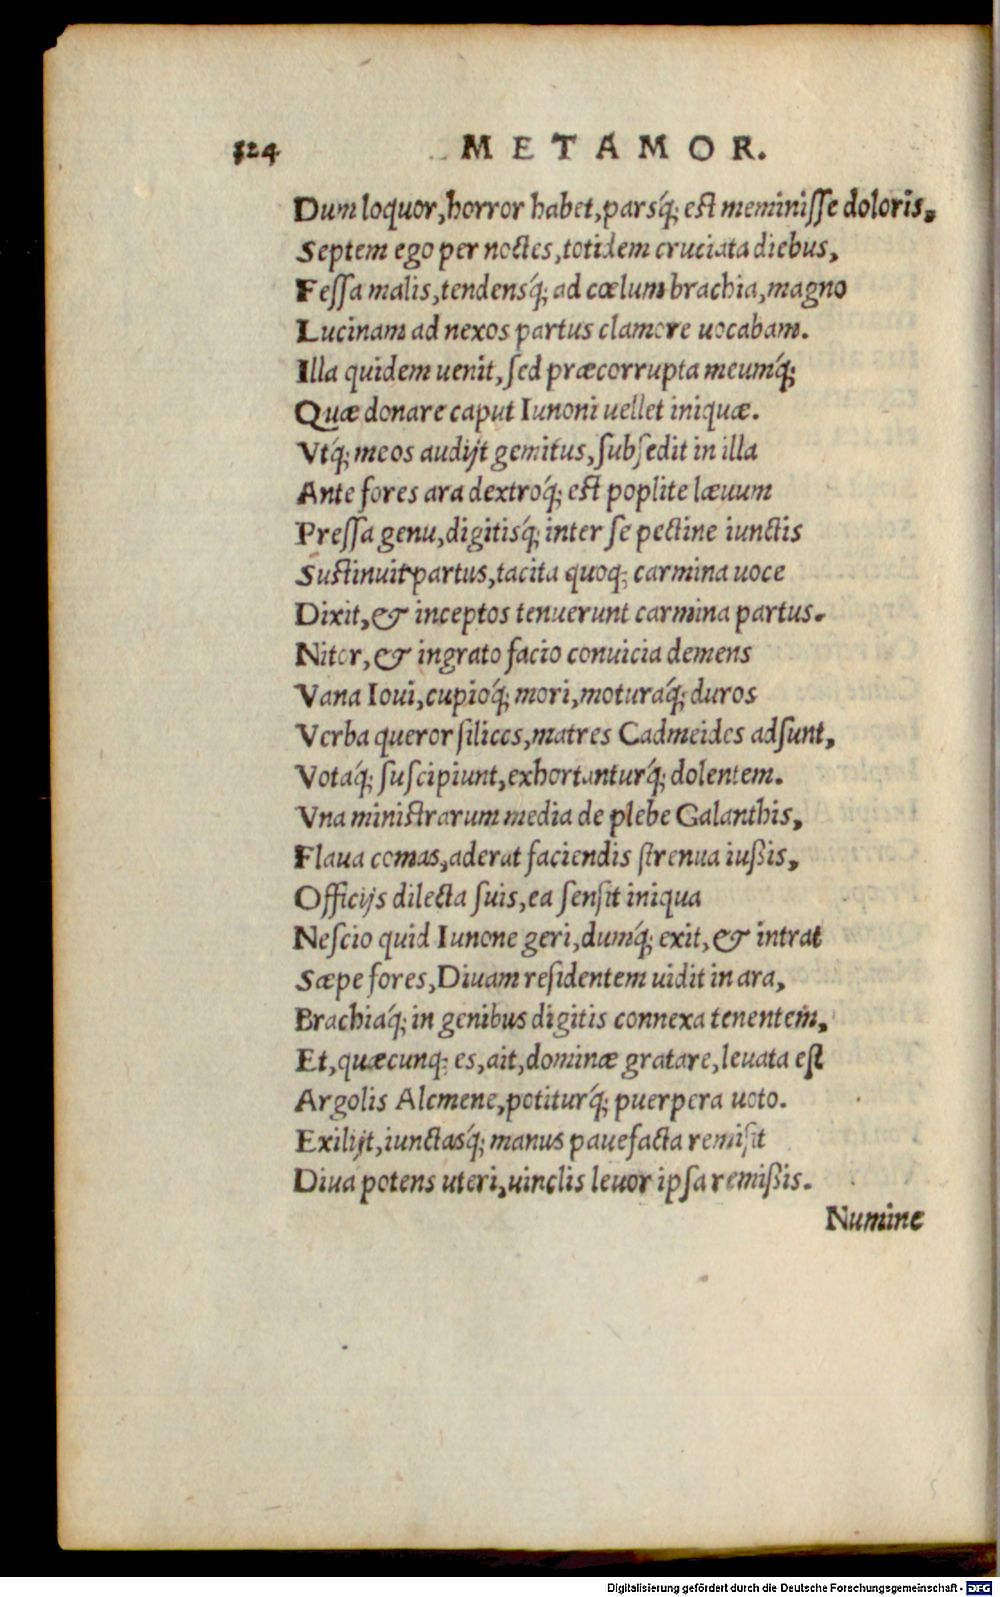 324 METAMOR.
Dum loquor, horror habet, parsq́; est meminisse doloris,
Septem ego per noctes, totidem cruciata diebus,
Fessa malis, tendensq́; ad cœlum brachia, magno
Lucinam ad nexos partus clamore uocabam.
Illa quidem uenit, sed præcorrupta meumq́;
Quæ donare caput Iunoni uellet iniquæ.
Vtq́; meos audijt gemitus, subsedit in illa
Ante fores ara dextroq́; est poplite læuum
Pressa genu, digitisq́; inter se pectine iunctis
Sustinuit partus, tacita quoq; carmina uoce
Dixit, & inceptos tenuerunt carmina partus.
Nitor, & ingrato facio conuicia demens
Vana Ioui, cupioq́; mori, moturaq́; duros
Verba queror silices, matres Cadmeides adsunt,
Votaq́; suscipiunt, exhortanturq́; dolentem.
Vna ministrarum media de plebe Galanthis,
Flaua comas, aderat faciendis strenua iußis,
Officijs dilecta suis, ea sensit iniqua
Nescio quid Iunone geri, dumq́; exit, & intrat
Sæpe fores, Diuam residentem uidit in ara,
Brachiaq́; in genibus digitis connexa tenentem,
Et, quæcunq; es, ait, dominæ gratare, leuata est
Argolis Alcmene, potiturq́; puerpera uoto.
Exilijt, iunctasq́; manus pauefacta remisit
Diua potens uteri, uinclis leuor ipsa remißis.
Numine
Digitalisierung gefördert durch die Deutsche Forschungsgemeinschaft - DFG